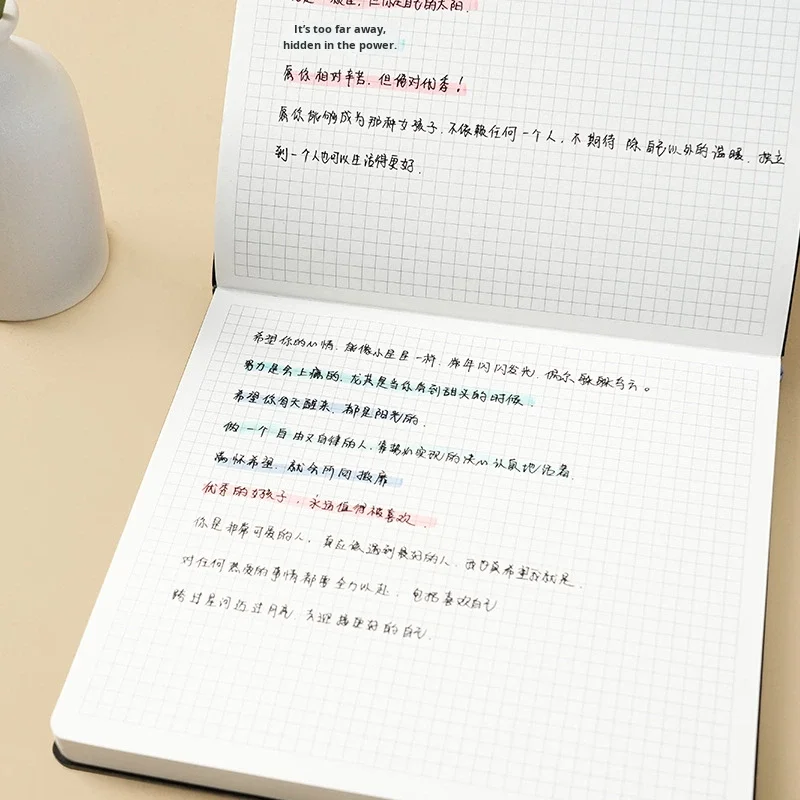 一颗星，但你是自己的太阳．
It's too far away,
hidden in the power.
愿你相对辛苦，但绝对优秀！
愿你能够成为那种女孩子．不依赖任何一个人，不期待 除自己以外的温暖．独立
到一个人也可以生活得更好．
希望你的心情．能像小星星一样．常年闪闪发光．偶尔躲躲乌云。
努力是会上瘾的．尤其是当你尝到甜头的时候．
希望你每天醒来．都是阳光的．
做一个自由又自律的人．靠势必实现的决心认真地活着．
满怀希望．就会所向披靡
优秀的女孩子，永远值得被喜欢．
你是非常可爱的人，真应该遇到最好的人．我也真希望我就是．
对任何热爱的事情都要全力以赴．包括喜欢自己
跨过星河迈过月亮 去迎接更好的自己．